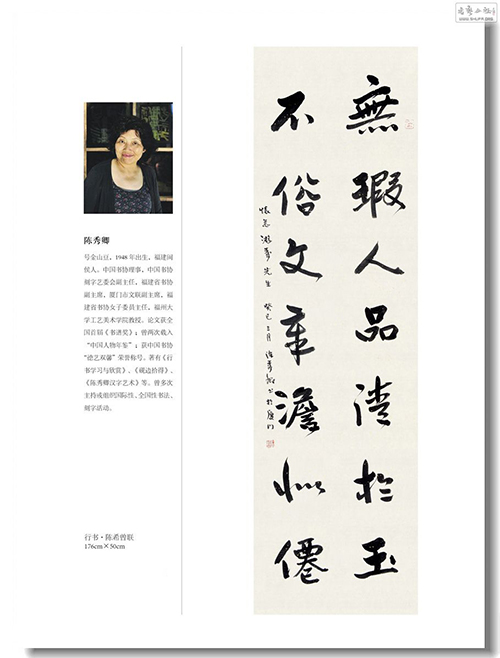 陈秀卿
号金山豆，1948 年出生，福建闽
侯人。中国书协理事，中国书协
刻字艺委会副主任，福建省书协
副主席，厦门市文联副主席，福
建省书协女子委员主任，福州大
学工艺美术学院教授。论文获全
国首届《书谱奖》；曾两次载入
“中国人物年鉴”；获中国书协
“德艺双馨”荣誉称号。著有《行
书学习与欣赏》、《砚边拾得》、
《陈秀卿汉字艺术》等。曾多次
主持或组织国际性、全国性书法、
刻字活动。
行书·陈希曾联
176cm×50cm
無瑕人品清於玉
不俗文章澹似僊
怀念 游寿先生 癸巳三月 陈秀卿书於厦门